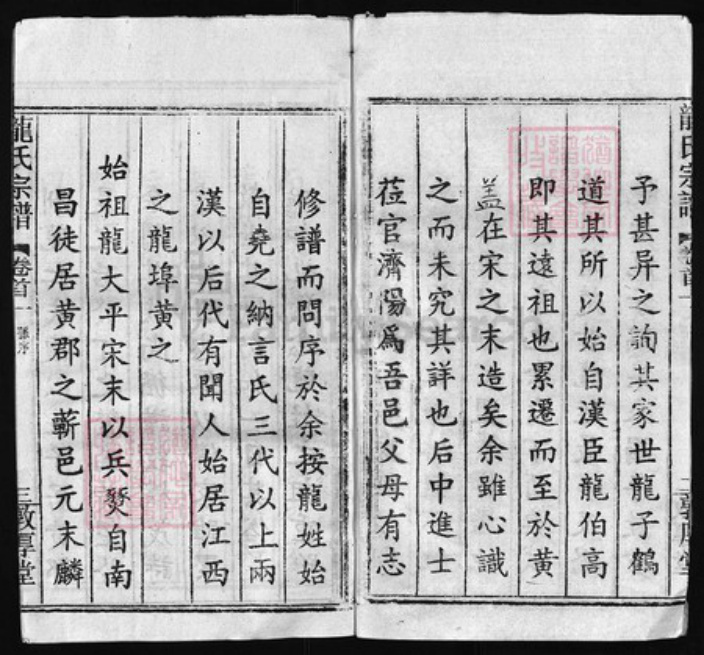 予甚异之詢其家世龍子鶴
道其所以始自漢臣龍伯高
即其遠祖也累遷而至於黄
盖在宋之末造矣余雖心識
之而未究其詳也后中進士
莅官濟陽爲吾邑父母有志
修譜而問序於余按龍姓始
自堯之納言氏三代以上兩
漢以后代有聞人始居江西
之龍埠黄之
始祖龍大平宋末以兵燹自南
昌徒居黄郡之蘄邑元末麟
龍氏宗譜
卷首一
三
敦厚堂